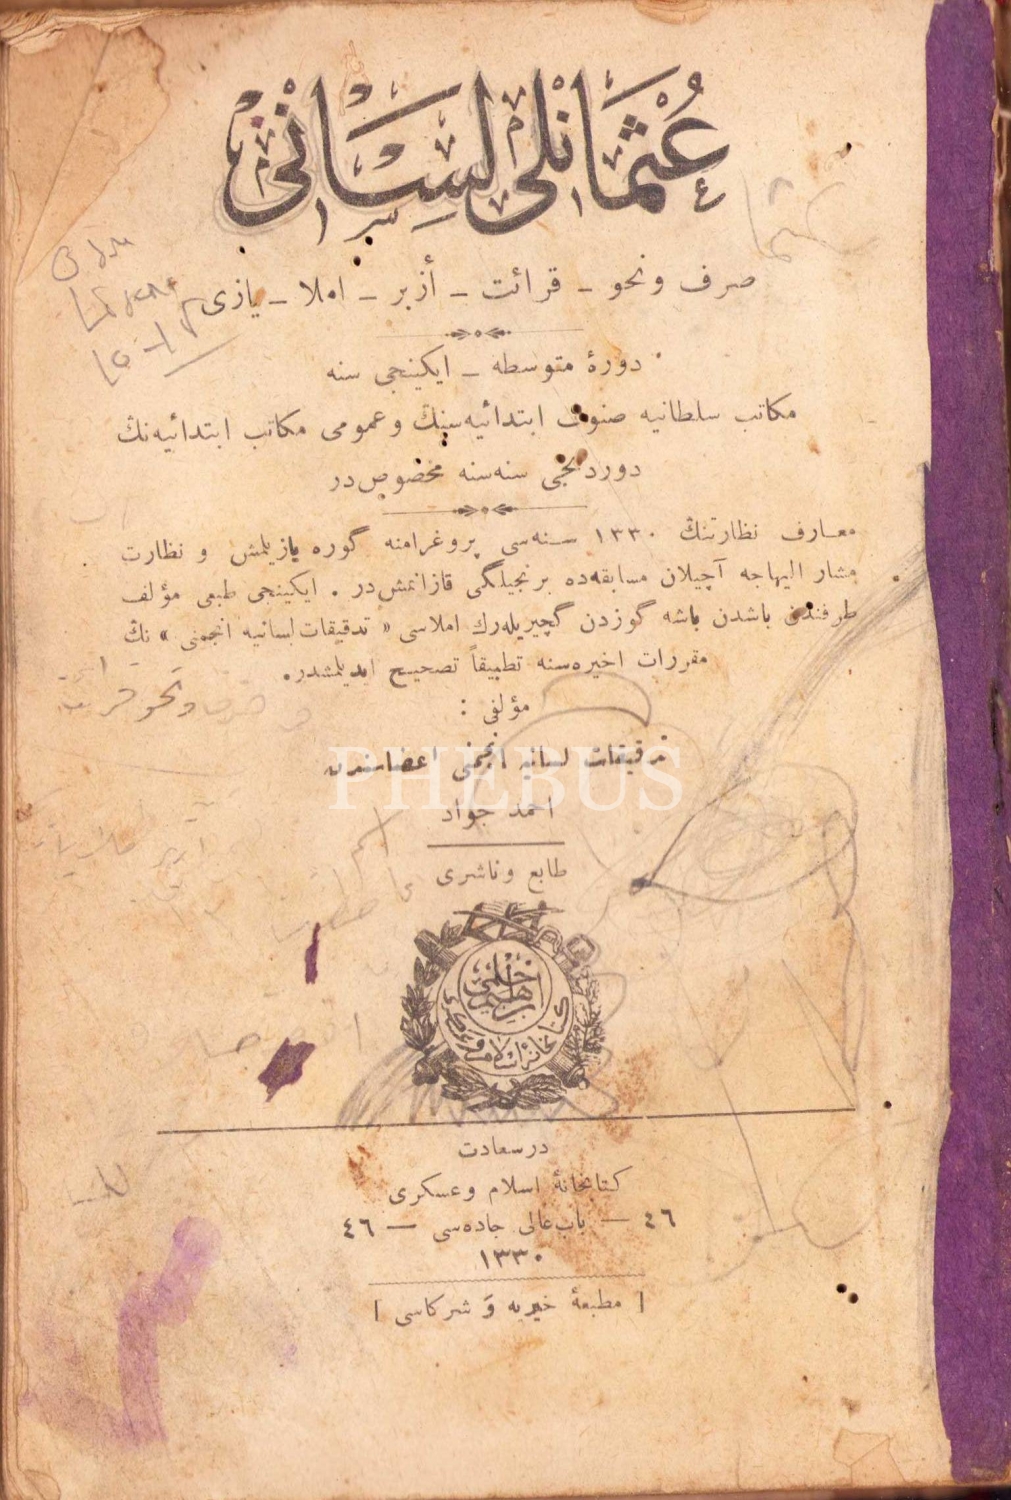 عثمانلی لسانی
صرف و نحو - قرائت - أزبر - املا - یازی
دورهٔ متوسطه - ایکینجی سنه
مکاتب سلطانیه صنوف ابتدائیه‌سینڭ و عمومی مکاتب ابتدائیه‌نڭ
دوردنجی سنه‌سنه مخصوص‌در
معارف نظارتنڭ ١٣٣٠ سنه‌سی پروغرامنه گوره یازیلمش و نظارت
مشار الیهاجه آچیلان مسابقه‌ده برنجیلگی قازانمش‌در . ایکینجی طبعی مؤلف
طرفندن باشدن باشه گوزدن گچیریله‌رك املاسی « تدقیقات لسانیه انجمنی » نڭ
مقررات اخیره‌سنه تطبیقاً تصحیح ایدیلمشدر.
مؤلفی :
تدقیقات لسانیه انجمنی اعضاسندن
PHEBUS
احمد جواد
طابع و ناشری
ابراهیم حلمی
کتابخانهٔ اسلام و عسکری
درسعادت
کتابخانهٔ اسلام و عسکری
٤٦ — باب‌عالی جاده‌سی — ٤٦
١٣٣٠
[ مطبعهٔ خیریه و شرکاسی ]